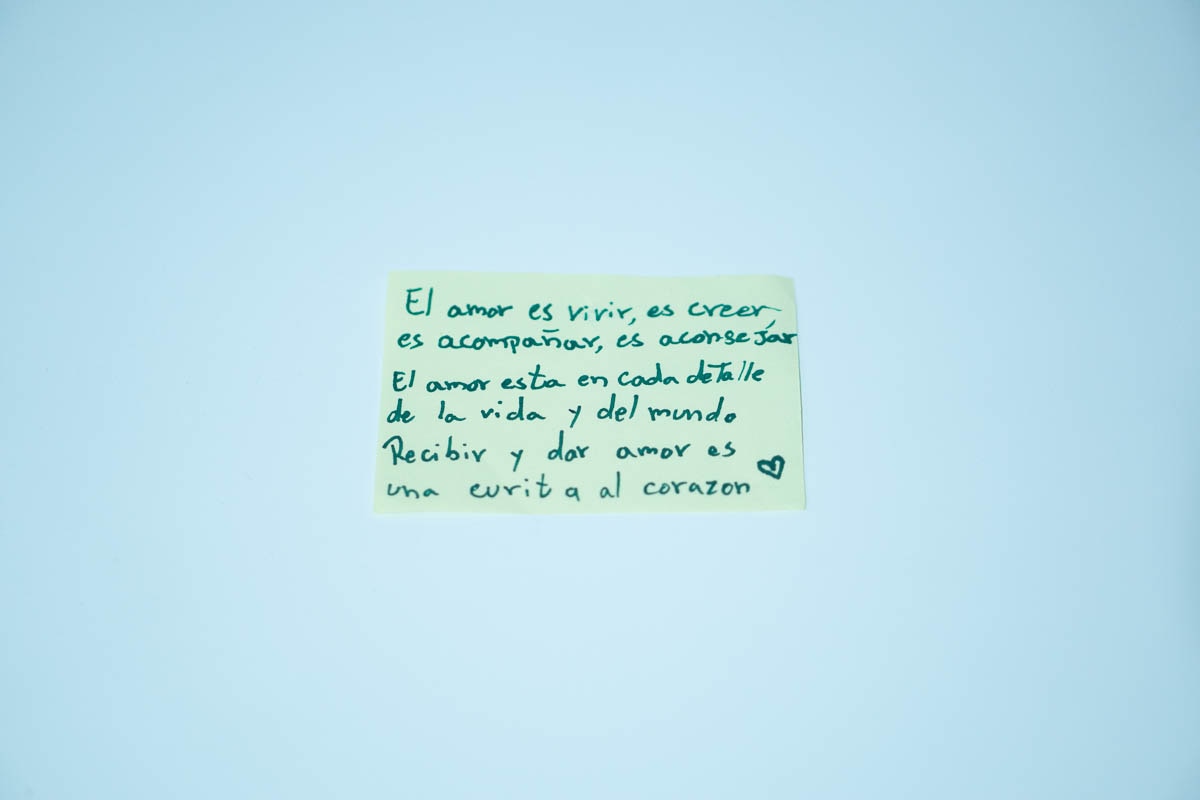 El amor es vivir, es creer,
es acompañar, es aconsejar
El amor esta en cada detalle
de la vida y del mundo
Recibir y dar amor es
una curita al corazon